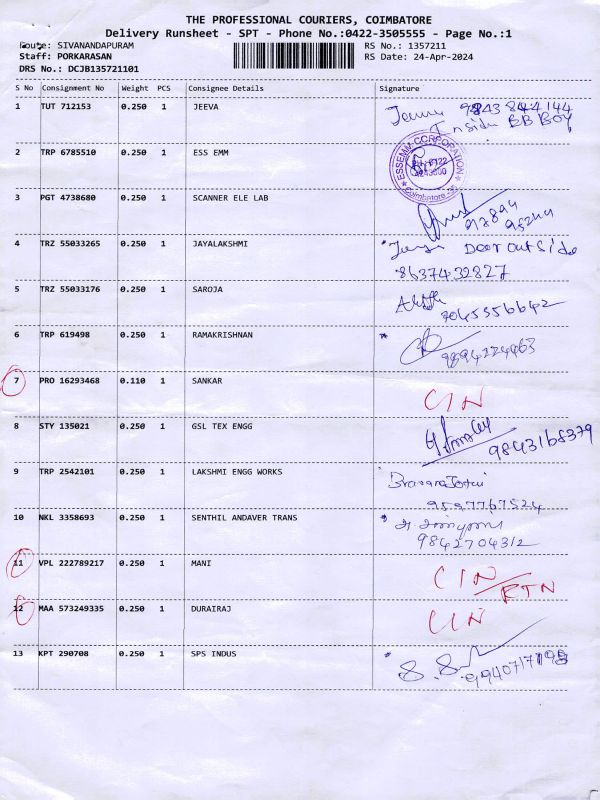 THE PROFESSIONAL COURIERS, COIMBATORE
Delivery Runsheet - SPT - Phone No.:0422-3505555 - Page No.:1
Route: SIVANANDAPURAM RS No.: 1357211
Staff: PORKARASAN RS Date: 24-Apr-2024
DRS No.: DCJB135721101
S No Consignment No Weight PCS Consignee Details Signature
1 TUT 712153 0.250 1 JEEVA 9843844144
Inside BB BOY
2 TRP 6785510 0.250 1 ESS EMM ESSEMM CORPORATION
Coimbatore
3 PGT 4738680 0.250 1 SCANNER ELE LAB
4 TRZ 55033265 0.250 1 JAYALAKSHMI Door outside
8637432827
5 TRZ 55033176 0.250 1 SAROJA
7045556642
6 TRP 619498 0.250 1 RAMAKRISHNAN 9894224463
7 PRO 16293468 0.110 1 SANKAR CIN
8 STY 135021 0.250 1 GSL TEX ENGG 9843168379
9 TRP 2542101 0.250 1 LAKSHMI ENGG WORKS
9597767524
10 NKL 3358693 0.250 1 SENTHIL ANDAVER TRANS
9842704312
11 VPL 222789217 0.250 1 MANI CIN/RTN
12 MAA 573249335 0.250 1 DURAIRAJ CIN
13 KPT 290708 0.250 1 SPS INDUS